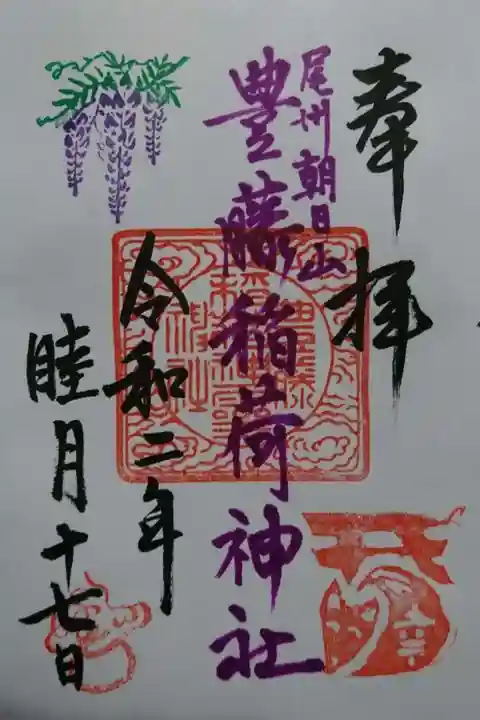 奉拝
尾州朝日山
豊藤稲荷神社
令和二年
睦月十七日